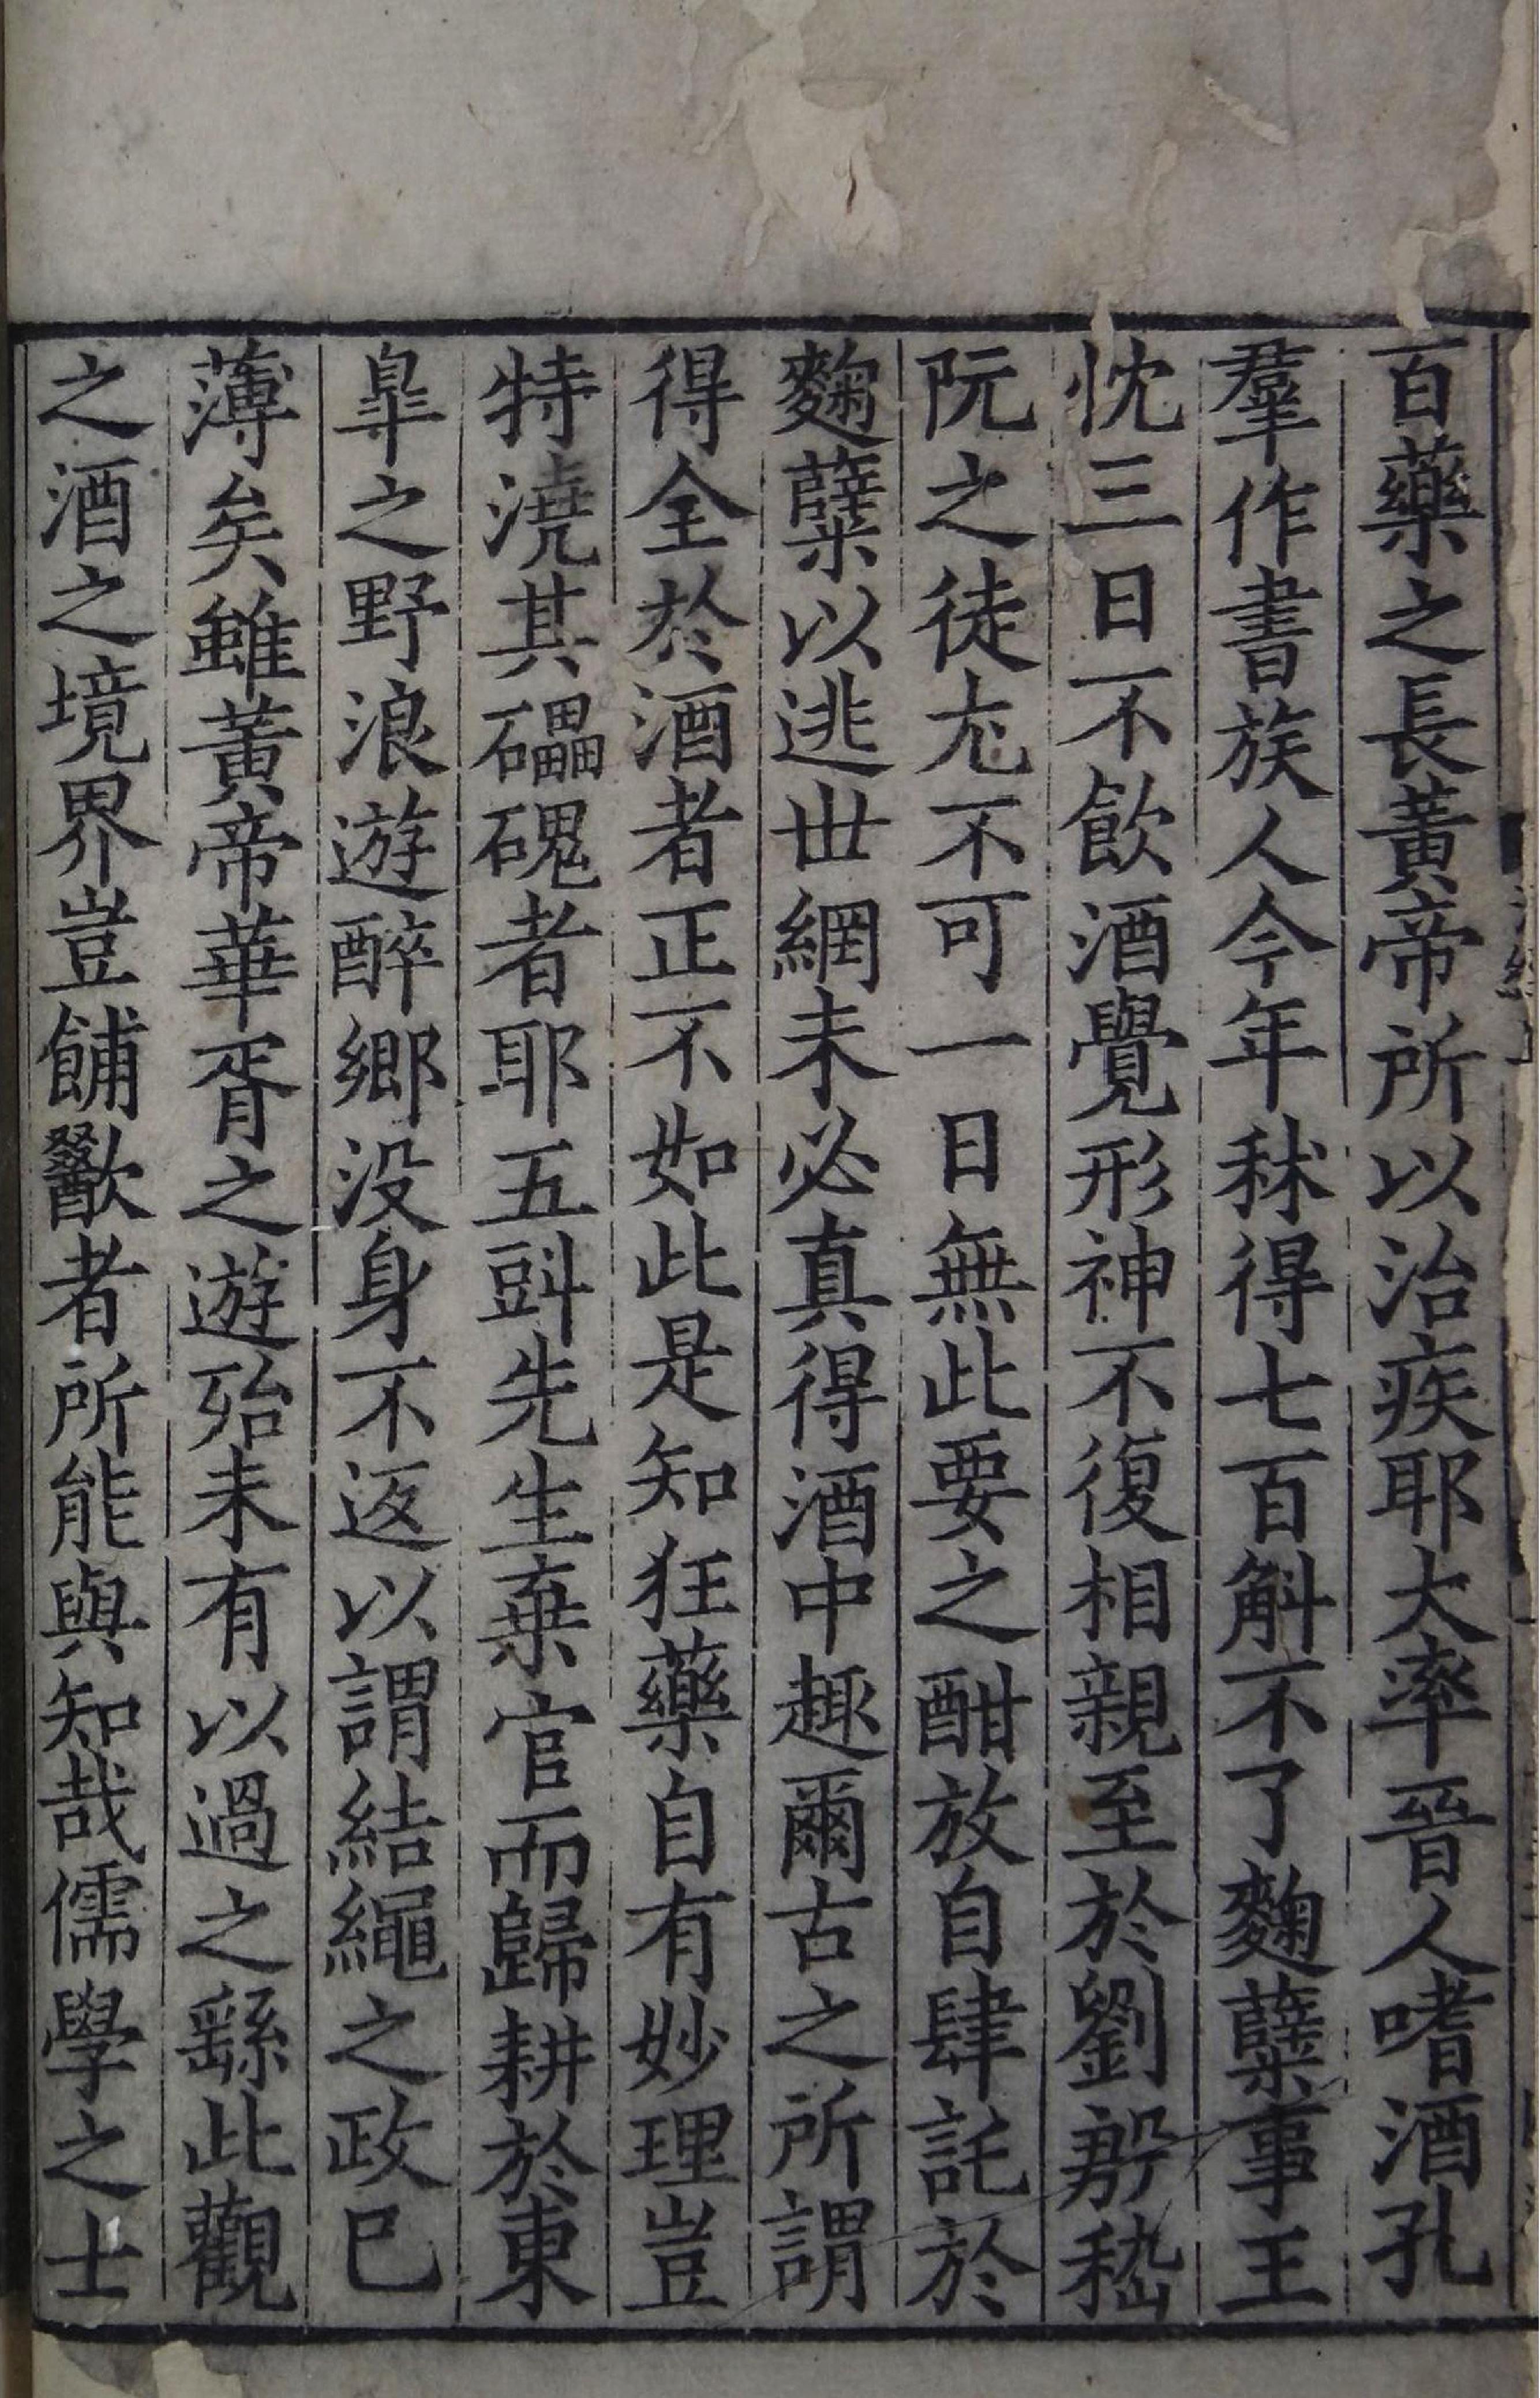 百藥之長黃帝所以治疾耶大率晉人嗜酒孔
羣作書族人今年秫得七百斛不了麴糵事王
忱三日不飲酒覺形神不復相親至於劉殷嵇
阮之徒尤不可一日無此要之酣放自肆託於
麴糵以逃世網未必真得酒中趣爾古之所謂
得全於酒者正不如此是知狂藥自有妙理豈
特澆其礧磈者耶五㪷先生棄官而歸耕於東
皐之野浪遊醉鄉没身不返以謂結繩之政已
薄矣雖黃帝華胥之遊殆未有以過之繇此觀
之酒之境界豈餔歠者所能與知哉儒學之士